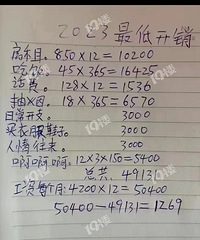 2023最低开销
房租.850×12=10200
吃饭.45×365=16425
话费.128×12=1536
抽烟.18×365=6570
日常开支. 3000
买衣服鞋子. 3000
人情往来. 3000
啊啊啊.12×3×150=5400
总共.49131
工资每个月:4200×12=50400
50400-49131=1269